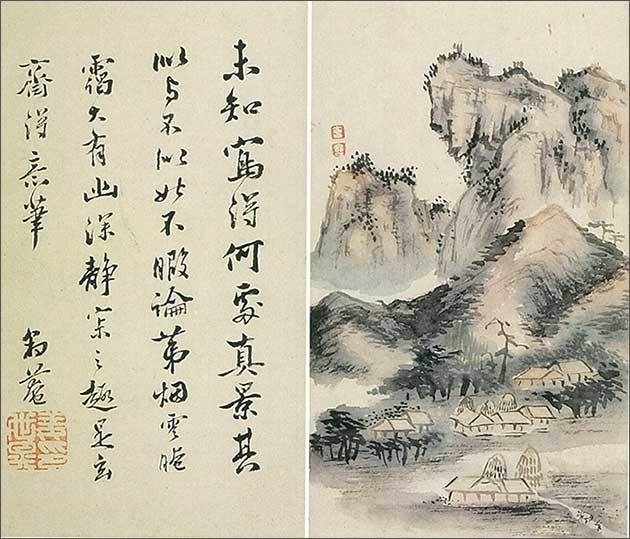 未知寫得何處真景其
似与不似姑不暇論第烟雲晻
靄大有幽深静寂之趣是玄
齋得意筆
豹菴